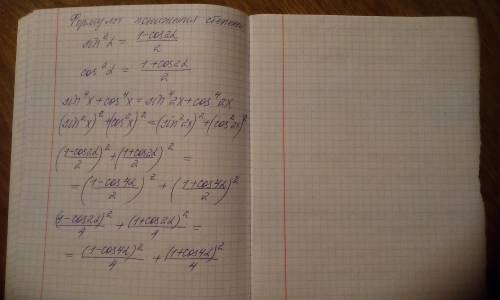 Формулы понижения степени
sin²α = (1-cos2α)/2
cos²α = (1+cos2α)/2
sin⁴x+cos⁴x = sin⁴2x+cos⁴2x
(sin²x)²+(cos²x)² = (sin²2x)²+(cos²2x)²
((1-cos2α)/2)² + ((1+cos2α)/2)² =
= ((1-cos4α)/2)² + ((1+cos4α)/2)²
(1-cos2α)²/4 + (1+cos2α)²/4 =
= (1-cos4α)²/4 + (1+cos4α)²/4